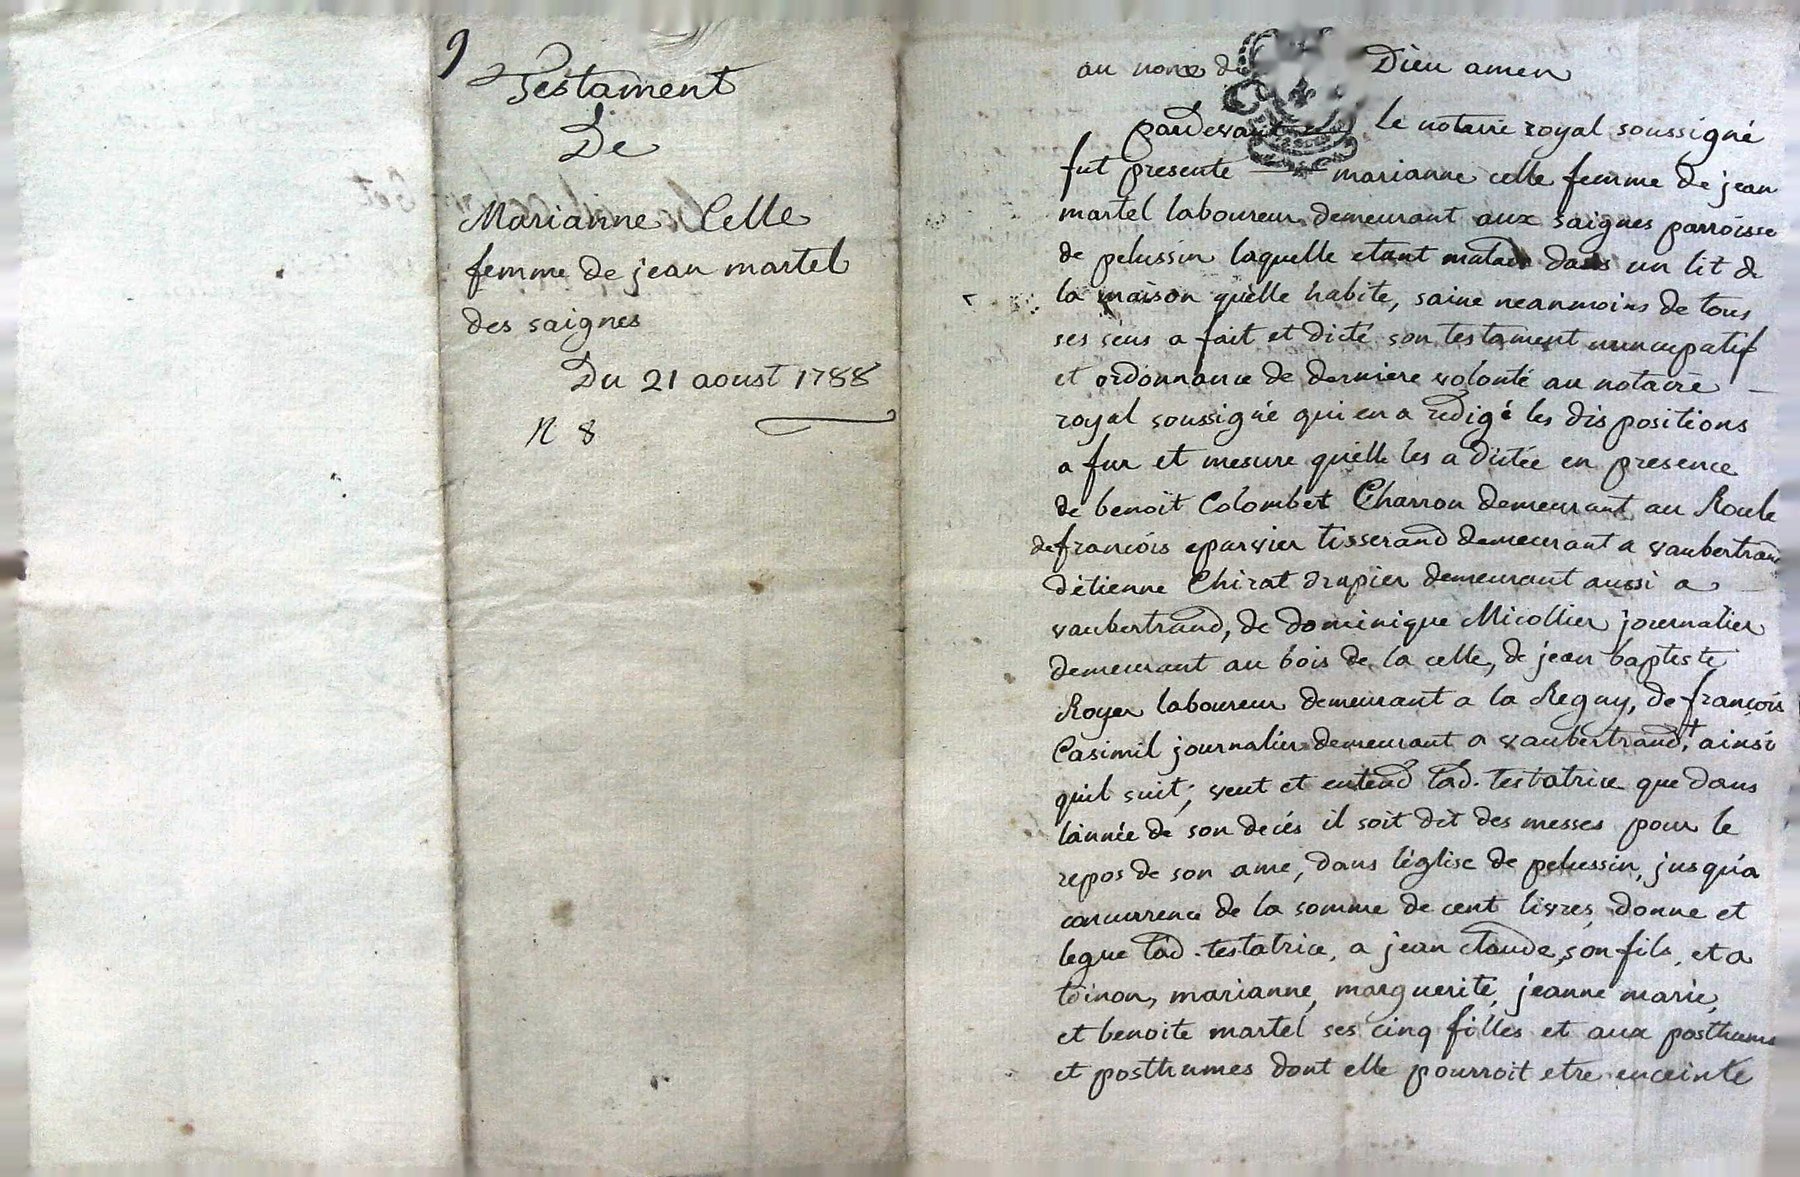 9
Testament
De
Marianne Celle
femme de jean martel
des saignes
Du 21 aoust 1788
N 8
au nom de Dieu amen
pardevant Le notaire royal soussigné
fut presente marianne celle femme de jean
martel laboureur demeurant aux saignes parroisse
de pelussin laquelle etant malade dans un lit de
la maison quèlle habite, saine neanmoins de tous
ses sens a fait et dicté son testament nuncupatif
et ordonnance de derniere volonté au notaire
royal soussigné qui en a redigé les dispositions
a fur et mesure quèlle les a dictée en presence
de benoit Colombet Charron demeurant au Roule
de francois eparvier tisserand demeurant a vaubertrand
dètienne Chirat drapier demeurant aussi a
vaubertrand, de dominique Micollier journalier
demeurant au bois de la celle, de jean baptiste
Royer laboureur demeurant a la Regny, de francois
Casimil journalier demeurant a vaubertrand, ainsi
quil suit; veut et entend lad. testatrice que dans
lànnée de son decés il soit dit des messes pour le
repos de son ame, dans lèglise de pelussin, jusqu'a
concurrence de la somme de cent livres, donne et
legue lad. testatrice, a jean claude, son fils, et a
toinon, marianne, marguerite, jeanne marie,
et benoite martel ses cinq filles et aux posthume
et posthumes dont elle pourroit etre enceinte